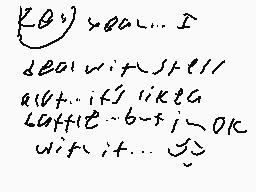 yeah... I
deal with stress
alot... it's like a
battle... but im OK
with it...